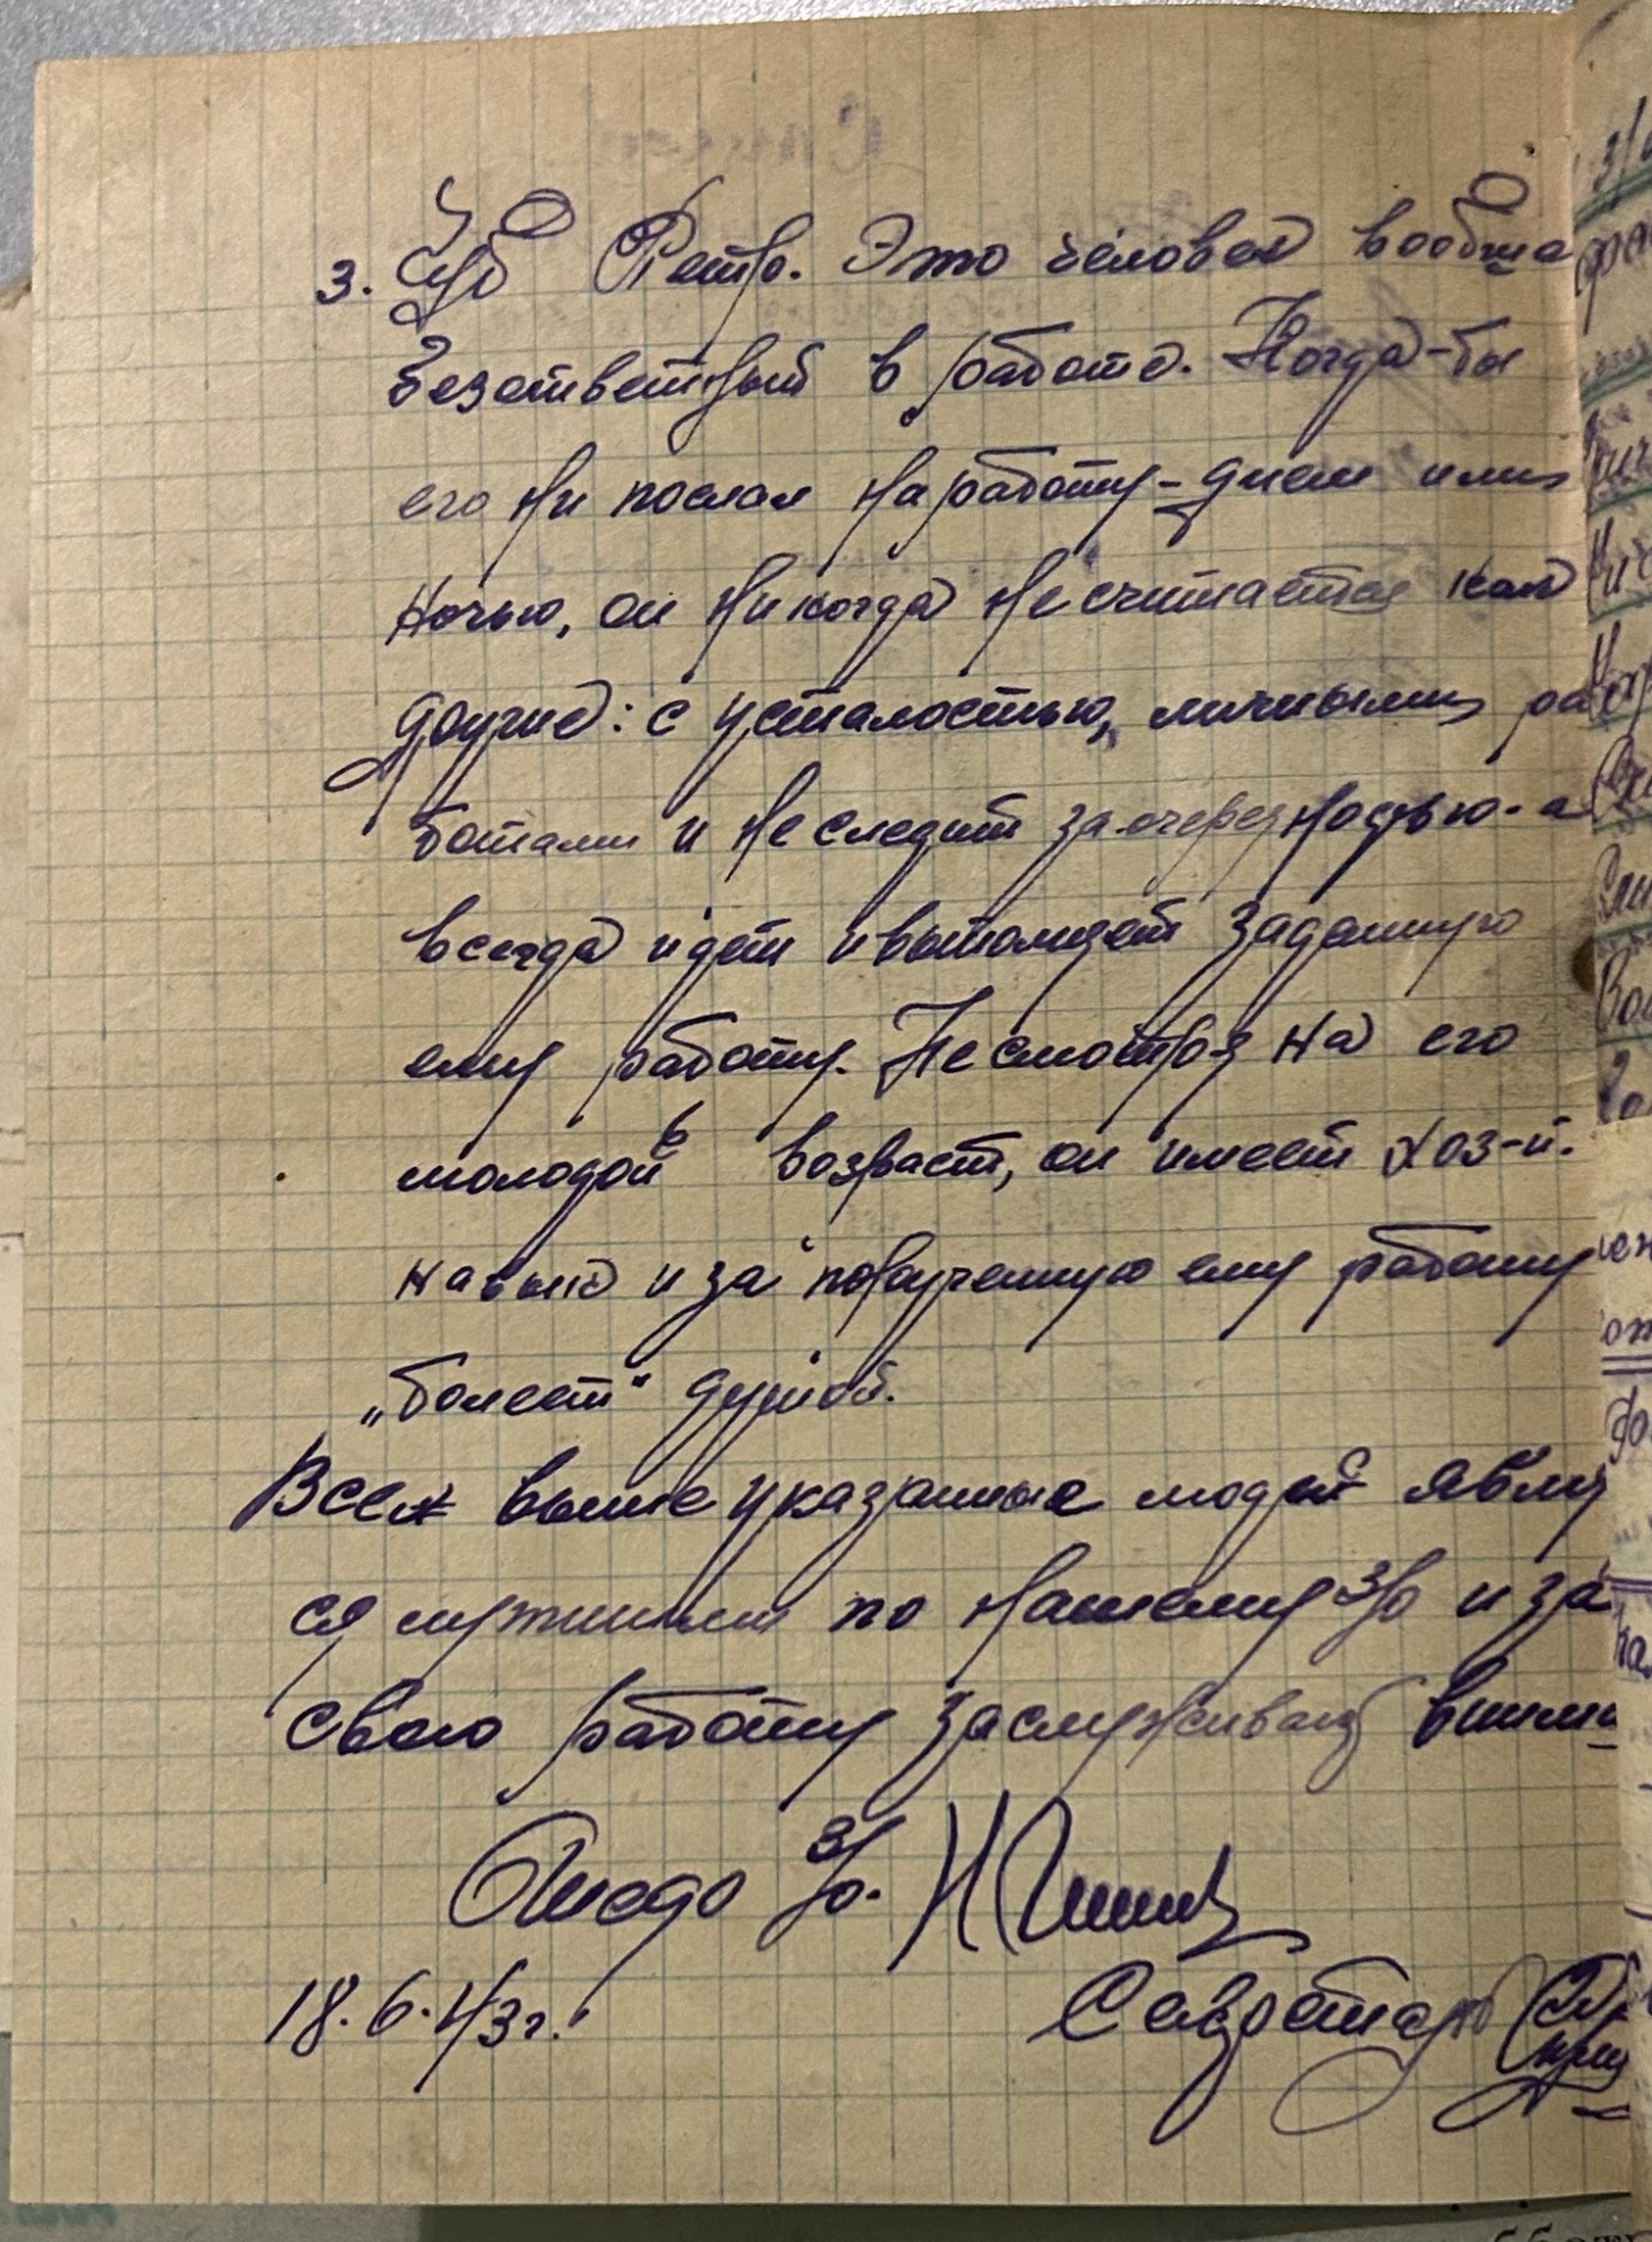 3. Цуб Петр. Это человек вообще
безответный в работе. Когда-бы
его ни послал на работу - днем или
ночью, он никогда не считается как
другие: с усталостью, личными ра
ботами и не следит за очередностью - а
всегда идет и выполняет заданную
ему работу. Несмотря на его
молодой возраст, он имеет хоз-й.
навык и за порученную ему работу
„болеет" душой.
Всех выше указанные людей явл
ся нужными по нашему з/о и за
свою работу заслуживают вним
з/о.
18.6.43г. Секретарь